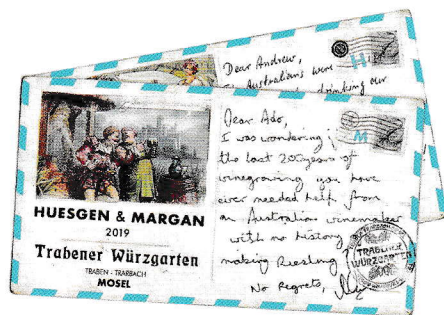 Dear Andrew,
Australians were
drinking our
H
HUESGEN & MARGAN
2019
Trabener Würzgarten
TRABEN - TRARBACH
MOSEL
Dear Ado,
I was wondering if
the last 200 years of
winegrowing you have
ever needed help from
an Australian winemaker
with no history
making Riesling?
No Regrets,
M
TRABENER
WÜRZGARTEN